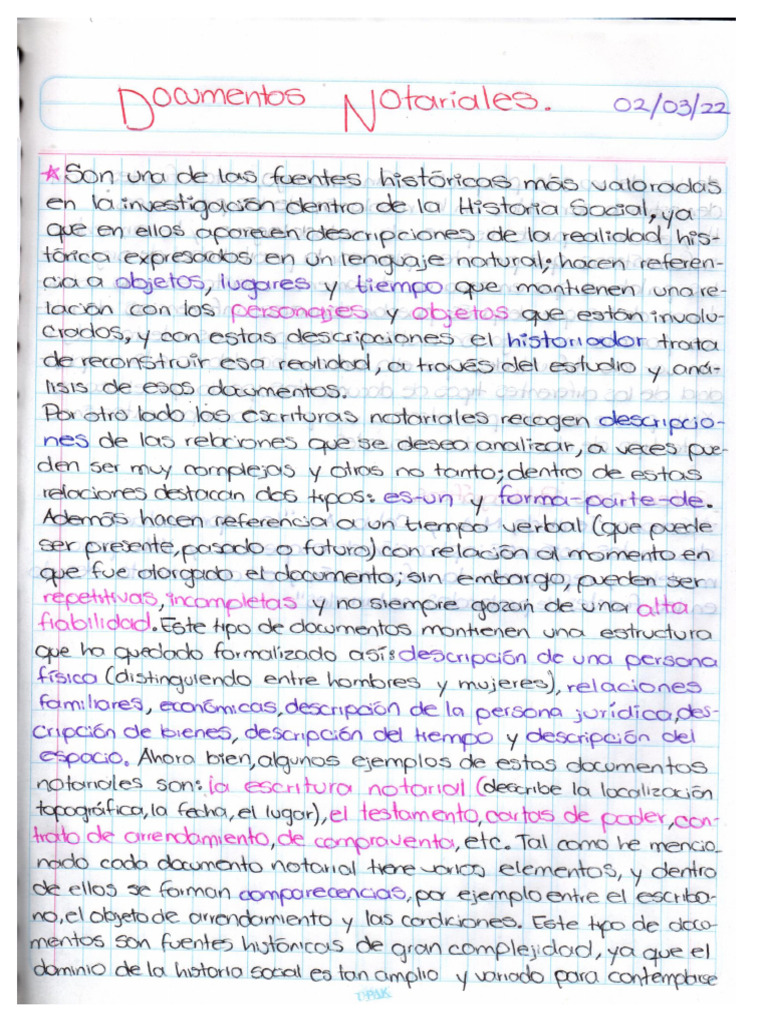 Documentos Notariales. 02/03/22
☆Son una de las fuentes históricas más valoradas
en la investigación dentro de la Historia Social, ya
que en ellos aparecen descripciones de la realidad his-
tórica expresados en un lenguaje natural; hacen referen-
cia a objetos, lugares y tiempo que mantienen una re-
lación con los personajes y objetos que están involu-
crados, y con estas descripciones el historiador trata
de reconstruir esa realidad, a través del estudio y aná-
lisis de esos documentos.
Por otro lado las escrituras notariales recogen descripcio-
nes de las relaciones que se desea analizar, a veces pue-
den ser muy complejas y otras no tanto; dentro de estas
relaciones destacan dos tipos: es-un y forma-parte-de.
Además hacen referencia a un tiempo verbal (que puede
ser presente, pasado o futuro) con relación al momento en
que fue otorgado el documento; sin embargo, pueden ser
repetitivas, incompletas y no siempre gozan de una alta
fiabilidad. Este tipo de documentos mantienen una estructura
que ha quedado formalizado así: descripción de una persona
física (distinguiendo entre hombres y mujeres), relaciones
familiares, económicas, descripción de la persona jurídica, des-
cripción de bienes, descripción del tiempo y descripción del
espacio. Ahora bien, algunos ejemplos de estos documentos
notariales son: la escritura notarial (describe la localización
topográfica, la fecha, el lugar), el testamento, cartas de poder, con-
trato de arrendamiento, de compraventa, etc. Tal como he mencio-
nado cada documento notarial tiene varios elementos, y dentro
de ellos se forman comparecencias, por ejemplo entre el escriba-
no, el objeto de arrendamiento y las condiciones. Este tipo de docu-
mentos son fuentes históricas de gran complejidad, ya que el
dominio de la historia social es tan amplio y variado para contemplarse